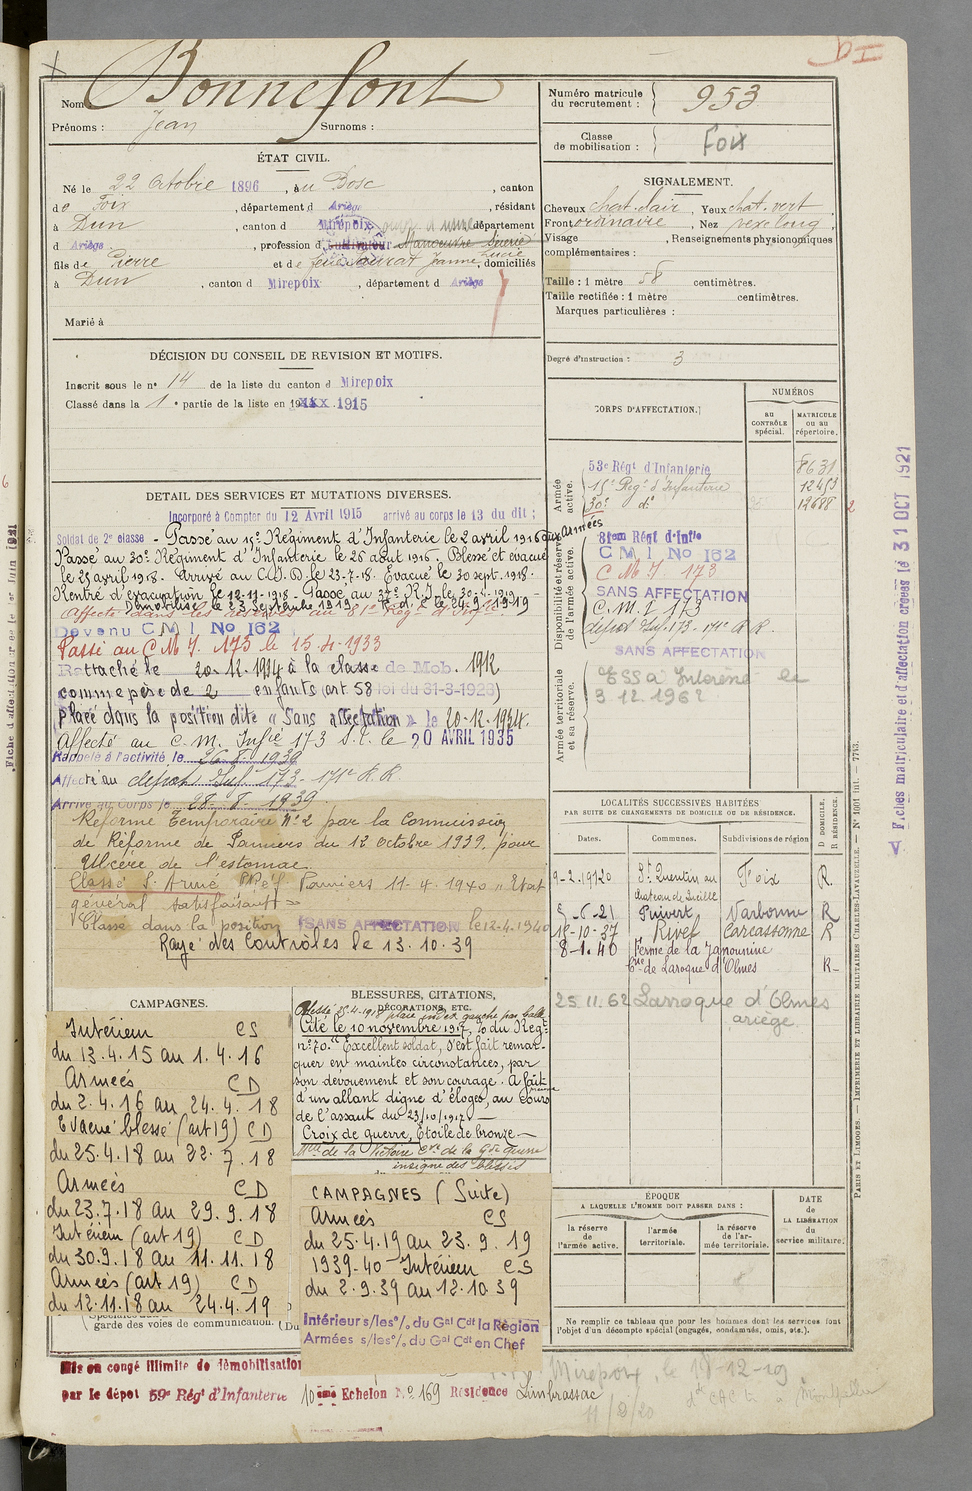 Nom Bonnefont
Prénoms : Jean Surnoms :
Numéro matricule du recrutement : 953
Classe de mobilisation : Foix
ÉTAT CIVIL.
Né le 22 Octobre 1896, à au Bosc, canton
de Foix, département d Ariège, résidant
à Dun, canton d Mirepoix département
d Ariège, profession d Cultivateur Manoeuvre
fils de Pierre et de feue Saurat Jeanne Lucie, domiciliés
à Dun, canton d Mirepoix, département d Ariège
Marié à
SIGNALEMENT.
Cheveux chat. clair, Yeux chat. vert
Front ordinaire, Nez vexe long,
Visage , Renseignements physionomiques
complémentaires :
Taille : 1 mètre 58 centimètres.
Taille rectifiée : 1 mètre centimètres.
Marques particulières :
Degré d'instruction : 3
DÉCISION DU CONSEIL DE REVISION ET MOTIFS.
Inscrit sous le n° 14 de la liste du canton d Mirepoix
Classé dans la 1e partie de la liste en 19 1915
DETAIL DES SERVICES ET MUTATIONS DIVERSES.
Incorporé à Compter du 12 Avril 1915 arrivé au corps le 13 du dit ;
Soldat de 2e classe - Passé au 15e Régiment d'Infanterie le 2 avril 1916 aux Armées
Passé au 30e Régiment d'Infanterie le 26 août 1916. Blessé et évacué
le 25 avril 1918. Arrivé au C.I.D. le 23-7-18. Évacué le 30 sept. 1918.
Rentré d'évacuation le 12-11-1918 - Passé au 37e R.I. le 30-4-1919 -
Démobilisé le 23 Septembre 1919
Affecté dans les réserves au 81e Rég. d'Inf.
Devenu C M I No 162
Passé au C M I. 173 le 15-4-1933
Rattaché le 20-12-1934 à la classe de Mob. 1912
comme père de 2 enfants (art 58 loi du 31-3-1928)
Placé dans la position dite « Sans affectation » le 20-12-1934.
Affecté au C. M. Infie 173 S.t. le 20 AVRIL 1935
Rappelé à l'activité le 26-8-1939
Affecté au dépôt Inf. 173 - 171e R.R.
Arrivé au Corps le 28-8-1939
Réformé temporaire N° 2 par la Commission
de Réforme de Pamiers du 12 octobre 1939, pour
Ulcère de l'estomac.
Classé S. Armé Pamiers 11-4-1940 "Etat
général satisfaisant"
Classé dans la position SANS AFFECTATION le 12-4-1940
Rayé des Contrôles le 13.10.39
CORPS D'AFFECTATION.
NUMÉROS
AU CONTRÔLE spécial.
MATRICULE ou au répertoire.
Armée active.
53e Régt d'Infanterie 8631
15e Regt d'Infanterie 12453
30e di 12688
Disponibilité et réserve de l'armée active.
81em Régt d'Infie
C M I No 162
C M I. 173
SANS AFFECTATION
C. M. I 173
dépôt Inf. 173 - 171e R R.
SANS AFFECTATION
Armée territoriale et sa réserve.
3 12 1962
LOCALITÉS SUCCESSIVES HABITÉES
PAR SUITE DE CHANGEMENTS DE DOMICILE OU DE RÉSIDENCE.
Dates. Communes. Subdivisions de région D DOMICILE, R RÉSIDENCE.
9-2-1920 St Quentin au Foix R.
-6-21 Puivert Narbonne R
18-10-37 Rivel Carcassonne R
8-1-40 Ferme de la Jamounine
Cne de Laroque d'Olmes R-
25.11.62 Larroque d'Olmes
ariège
CAMPAGNES.
Intérieur CS
du 13.4.15 au 1.4.16
Armées CD
du 2.4.16 au 24.4.18
Evacué blessé (art 19) CD
du 25.4.18 au 22.7.18
Armées CD
du 23.7.18 au 29.9.18
Intérieur (art 19) CD
du 30.9.18 au 11.11.18
Armées (art 19) CD
du 12.11.18 au 24.4.19
garde des voies de communication.
BLESSURES, CITATIONS, DÉCORATIONS, ETC.
Blessé 25-4-1918 plaie index gauche par balle
Cité le 10 novembre 1917, % du Régt
n° 70. "Excellent soldat, s'est fait remar-
quer en maintes circonstances, par
son dévouement et son courage. A fait preuve
d'un allant digne d'éloges, au cours
de l'assaut du 23/10/1917. -
Croix de guerre, Etoile de bronze. -
Mlle de la Victoire Cve de la Gde guerre
insigne des blessés
CAMPAGNES (Suite)
Armées CS
du 25.4.19 au 23.9.19
1939-40 - Intérieur CS
du 2.9.39 au 12.10.39
Intérieur s/les % du Gal Cdt la Région
Armées s/les % du Gal Cdt en Chef
ÉPOQUE
A LAQUELLE L'HOMME DOIT PASSER DANS :
la réserve de l'armée active.
l'armée territoriale.
la réserve de l'armée territoriale.
DATE DE LA LIBÉRATION du service militaire.
Ne remplir ce tableau que pour les hommes dont les services font
l'objet d'un décompte spécial (engagés, condamnés, omis, etc.).
Mis en congé illimité de démobilisation
par le dépôt 59e Régt d'Infanterie 10ème Echelon No 169 Résidence Limbrassac
Mirepoix, le 19-12-19
11/2/20
Fiches matriculaire et d'affectation créées le 31 OCT 1921
PARIS ET LIMOGES. — IMPRIMERIE ET LIBRAIRIE MILITAIRES CHARLES-LAVAUZELLE. — N° 1001 int. — 7743.